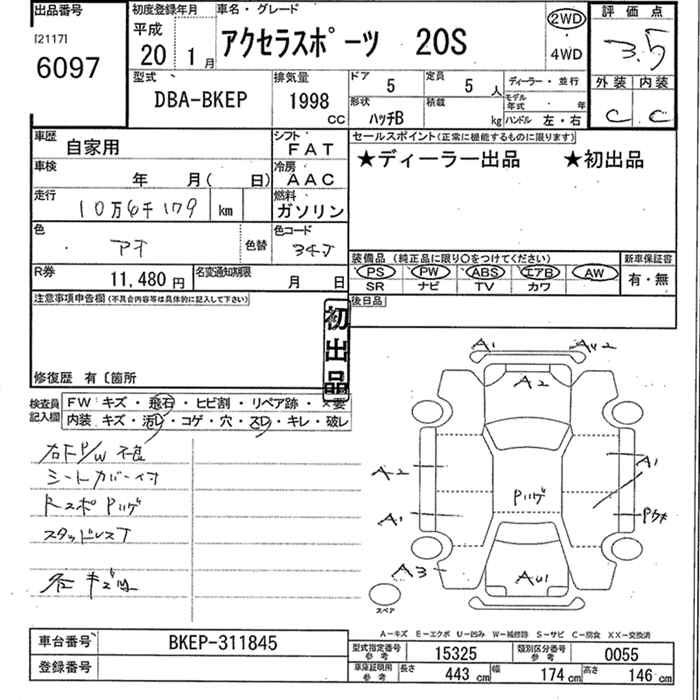 出品番号
[2117]
6097
初度登録年月
平成
20 1月
車名・グレード
アクセラスポーツ 20S
2WD
・
4WD
評価点
3.5
外装 内装
C C
型式
DBA-BKEP
排気量
1998
CC
ドア 5
定員 5人
形状 ハッチB
積載 kg
ディーラー・並行
モデル年式 ・ 年
ハンドル 左・右
車歴 自家用
シフト FAT
車検 年 月( 日)
冷房 AAC
走行 10万6千179 km
燃料 ガソリン
色 アオ
色替
色コード 34J
R券 11,480円
名変通知期限 月 日
セールスポイント(正常に機能するものに限ります)
★ディーラー出品 ★初出品
装備品(純正品に限り○をつけてください)
PS PW ABS エアB AW
SR ナビ TV カワ
新車保証書
有・無
後日品
注意事項申告欄(不具合内容等は具体的に記入して下さい)
初出品
修復歴 有〔箇所
検査員記入欄
FW キズ・飛石・ヒビ割・リペア跡・X要
内装 キズ・汚レ・コゲ・穴・スレ・キレ・破レ
右F P/W 不良
シートカバー付
Rスポ Pハゲ
スタッドレスT
キズ凹
A1
A2
A2
A1
A1
A3
Pハゲ
AU1
スペア
A-キズ E-エクボ U-凹み W-補修跡 S-サビ C-腐食 XX-交換済
車台番号 BKEP-311845
登録番号
型式指定番号 参考 15325
類別区分番号 参考 0055
車庫証明用 参考 長さ 443cm 幅 174cm 高さ 146cm